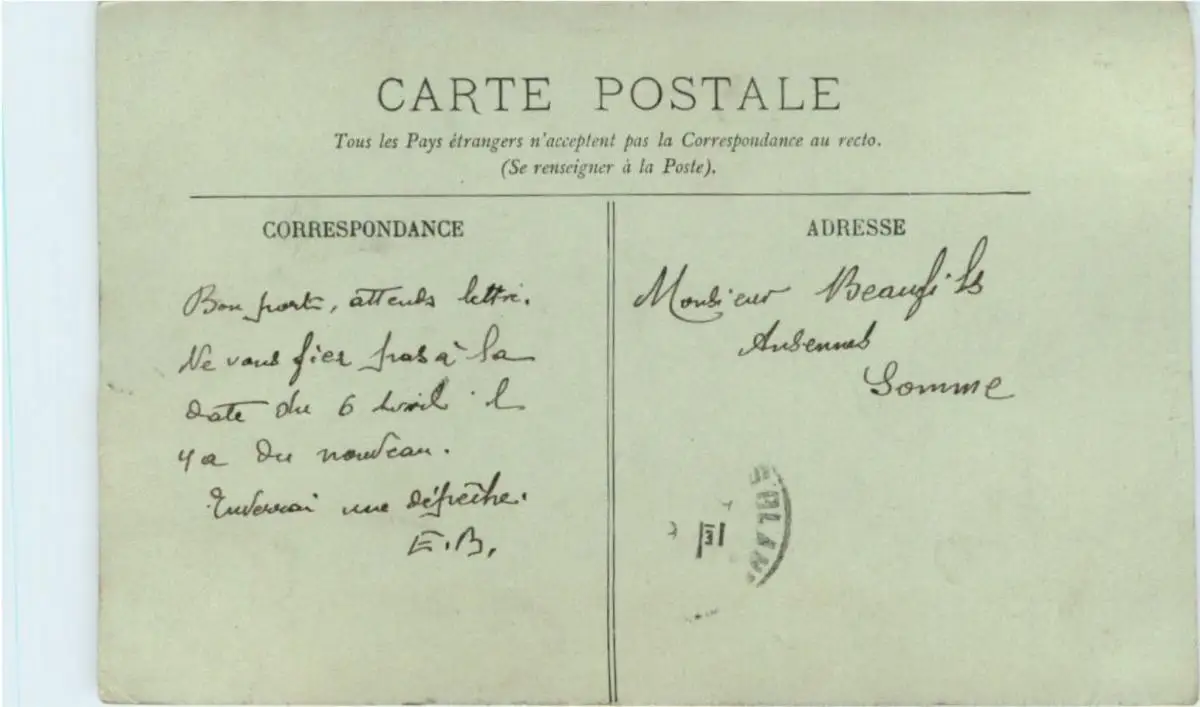 CARTE POSTALE
Tous les Pays étrangers n'acceptent pas la Correspondance au recto.
(Se renseigner à la Poste).
CORRESPONDANCE
Bon port, attends lettre.
Ne vous fier pas à la
date du 6 Avril il
y a du nouveau.
Enverrai une dépêche.
E.B.
ADRESSE
Monsieur Beaufils
Ansennes
Somme